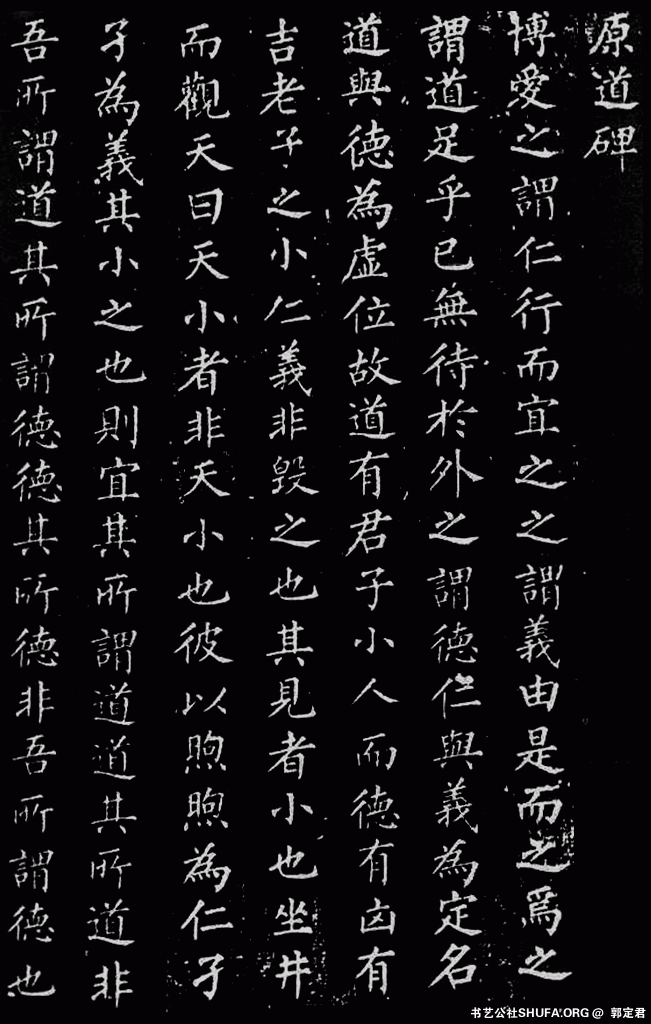 原道碑
博愛之謂仁行而宜之之謂義由是而之爲之
謂道足乎已無待於外之謂德仁與義為定名
道與德為虛位故道有君子小人而德有凶有
吉老子之小仁義非毀之也其見者小也坐井
而觀天曰天小者非天小也彼以煦煦為仁孑
孑為義其小之也則宜其所謂道道其所道非
吾所謂道其所謂德德其所德非吾所謂德也
书艺公社SHUFA.ORG @ 郭定君